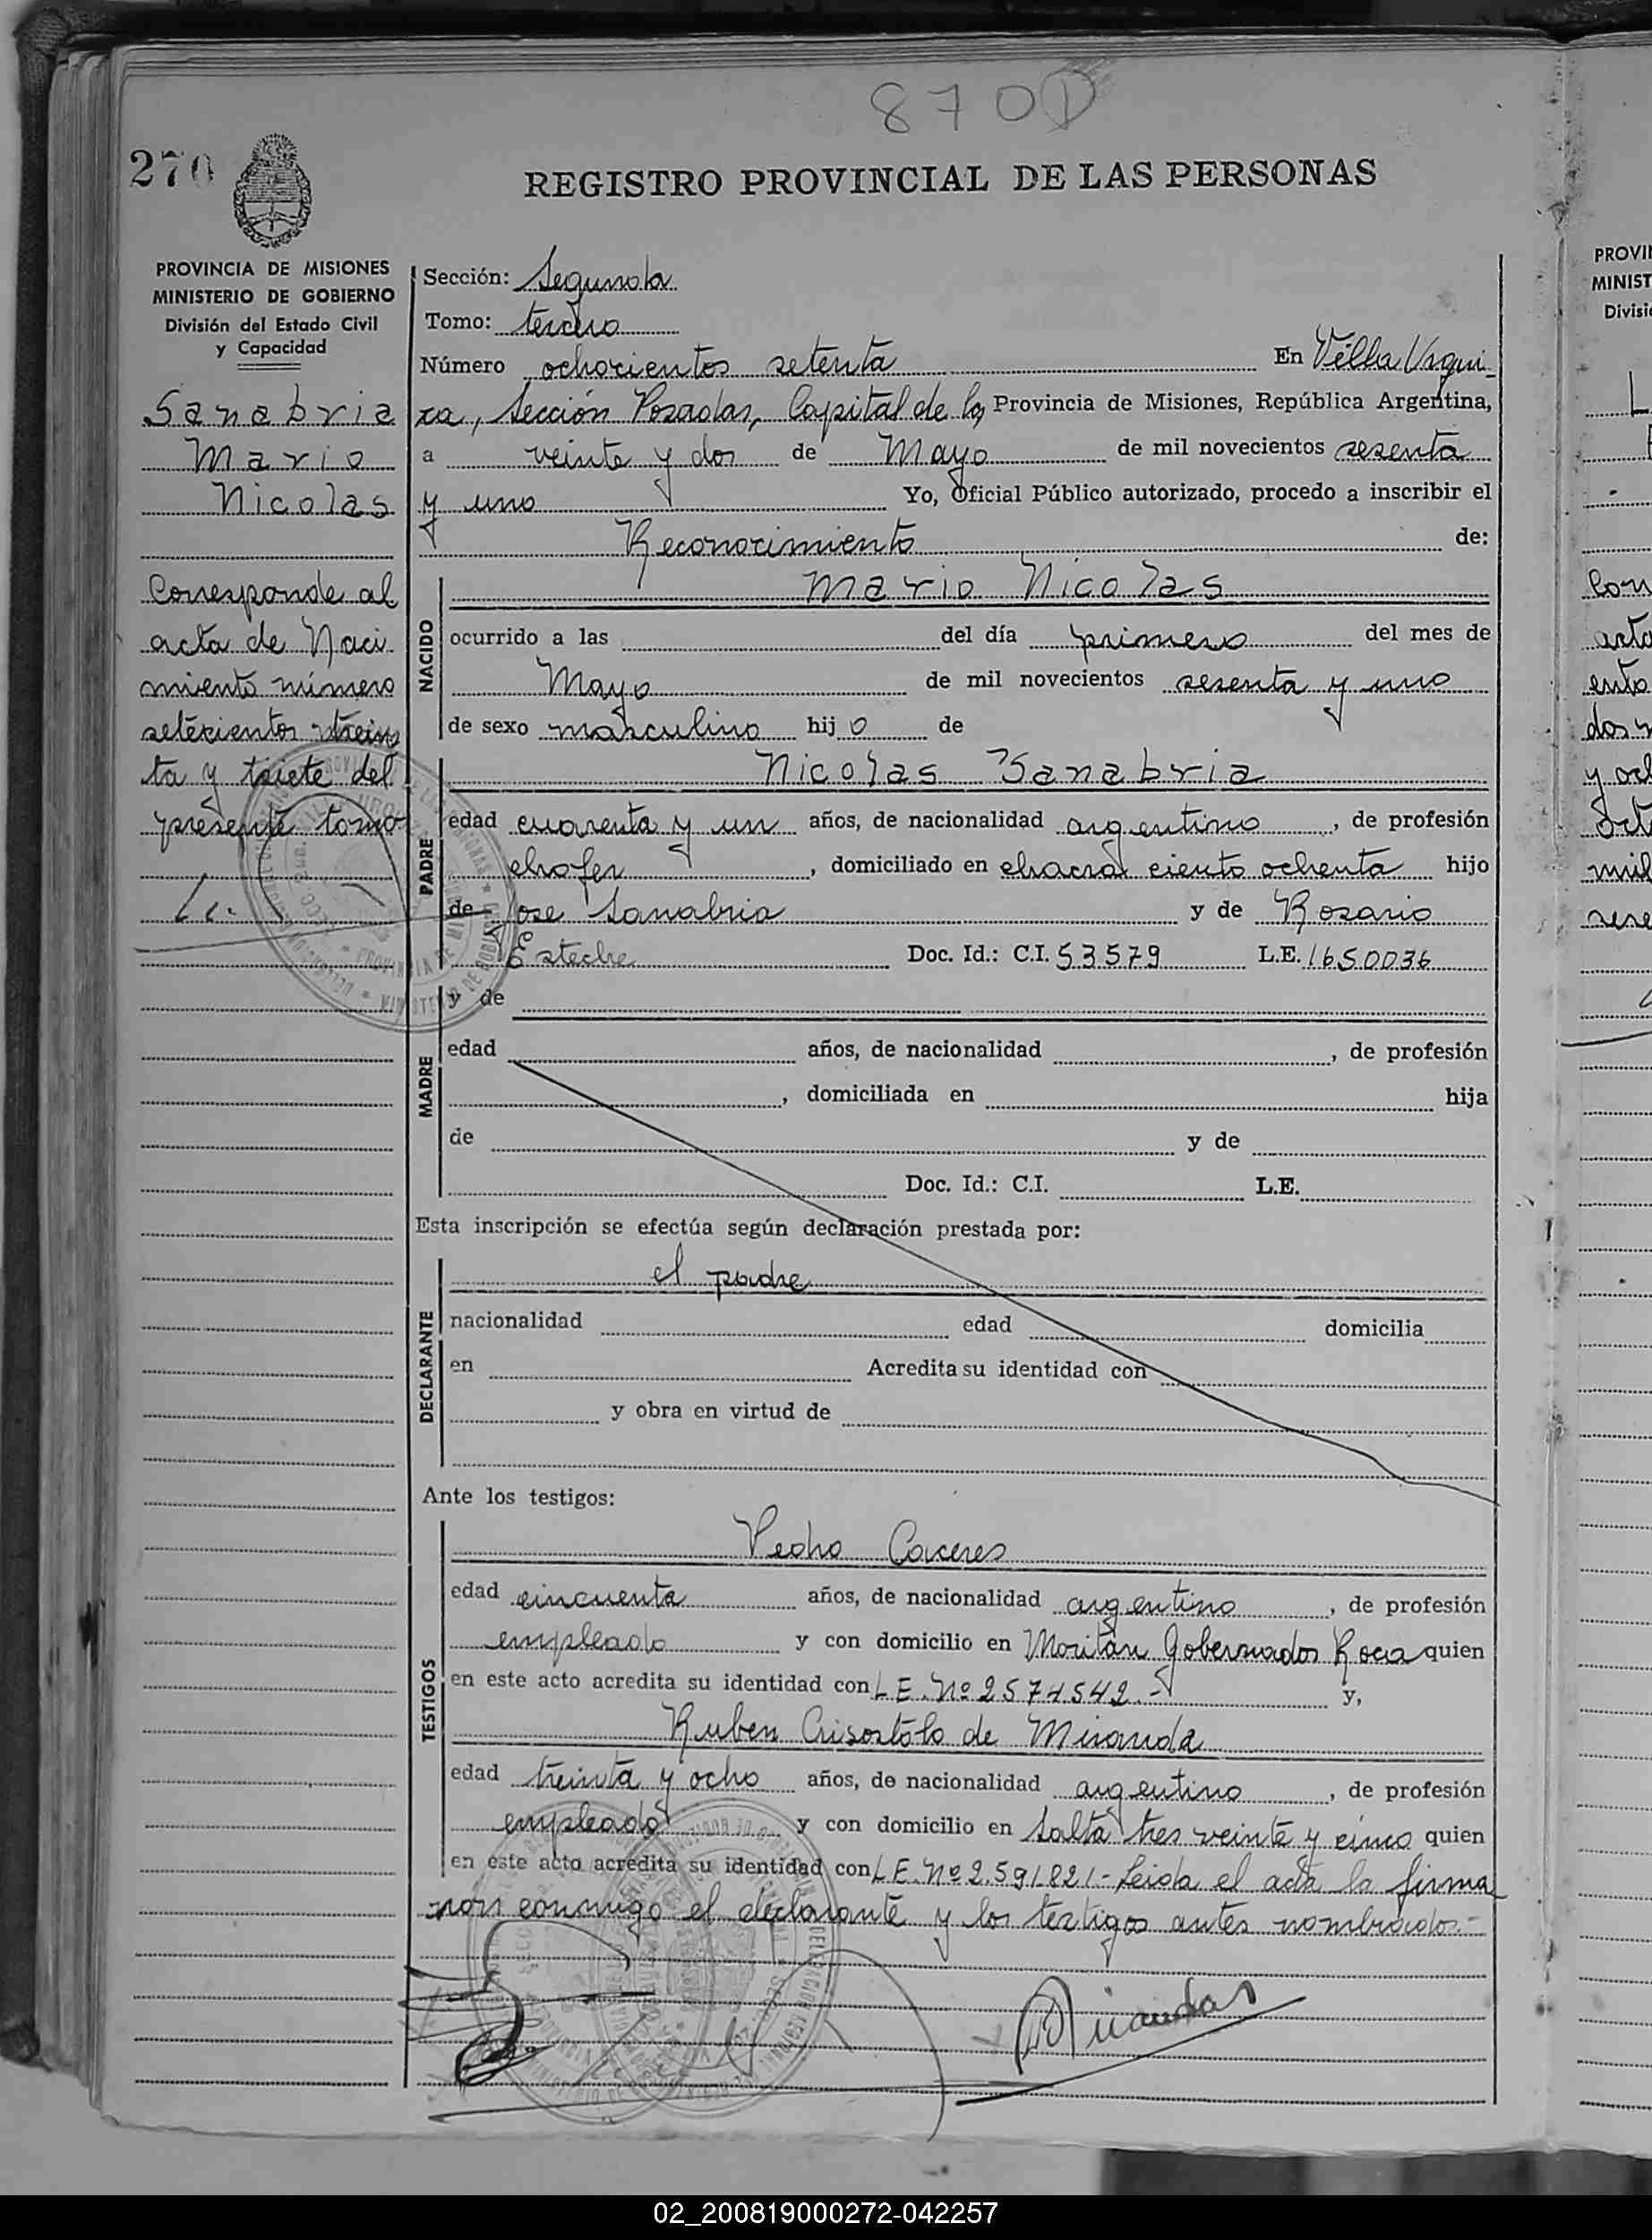 870D
270
REGISTRO PROVINCIAL DE LAS PERSONAS
PROVINCIA DE MISIONES
MINISTERIO DE GOBIERNO
División del Estado Civil
y Capacidad
Sanabria
Mario
Nicolas
Corresponde al
acta de Naci
miento número
setecientos trein
ta y siete del
presente tomo
Sección: Segunda
Tomo: tercero
Número ochocientos setenta En Villa Urqui-
za, Sección Posadas, Capital de la Provincia de Misiones, República Argentina,
a veinte y dos de Mayo de mil novecientos sesenta
y uno Yo, Oficial Público autorizado, procedo a inscribir el
Reconocimiento de:
NACIDO
Mario Nicolas
ocurrido a las del día primero del mes de
Mayo de mil novecientos sesenta y uno
de sexo masculino hijo de
PADRE
Nicolas Sanabria
edad cuarenta y un años, de nacionalidad argentino, de profesión
chofer, domiciliado en chacra ciento ochenta hijo
de Jose Sanabria y de Rosario
Esteche Doc. Id.: C.I. 53579 L.E. 1650036
MADRE
y de
edad años, de nacionalidad , de profesión
, domiciliada en hija
de y de
Doc. Id.: C.I. L.E.
Esta inscripción se efectúa según declaración prestada por:
DECLARANTE
el padre
nacionalidad edad domicilia
en Acredita su identidad con
y obra en virtud de
Ante los testigos:
TESTIGOS
Pedro Caceres
edad cincuenta años, de nacionalidad argentino, de profesión
empleado y con domicilio en Moritan Gobernador Roca quien
en este acto acredita su identidad con L E. Nº 2574542.- y,
Ruben Crisostolo de Miranda
edad treinta y ocho años, de nacionalidad argentino, de profesión
empleado y con domicilio en Salta tres veinte y cinco quien
en este acto acredita su identidad con L E. Nº 2.591.821- Leida el acta la firma
non conmigo el declarante y los testigos antes nombrados.-
02_200819000272-042257